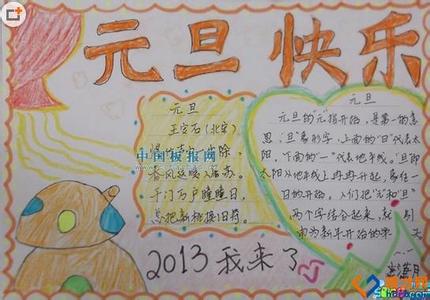 元旦快乐
元旦
春风送暖入屠苏。
千门万户曈曈日,
总把新桃换旧符.
中国板报网
元旦
元旦的“元”指开始,是第一的意
思,“旦”象形字,上面的“日”代表太
阳,下面的“一”代表地平线。“旦”即
太阳从地平线上冉冉升起,象征一
日的开始。人们把“元”和“旦”
两个字结合起来,就引
申为新年开始的第
天
2013 我来了